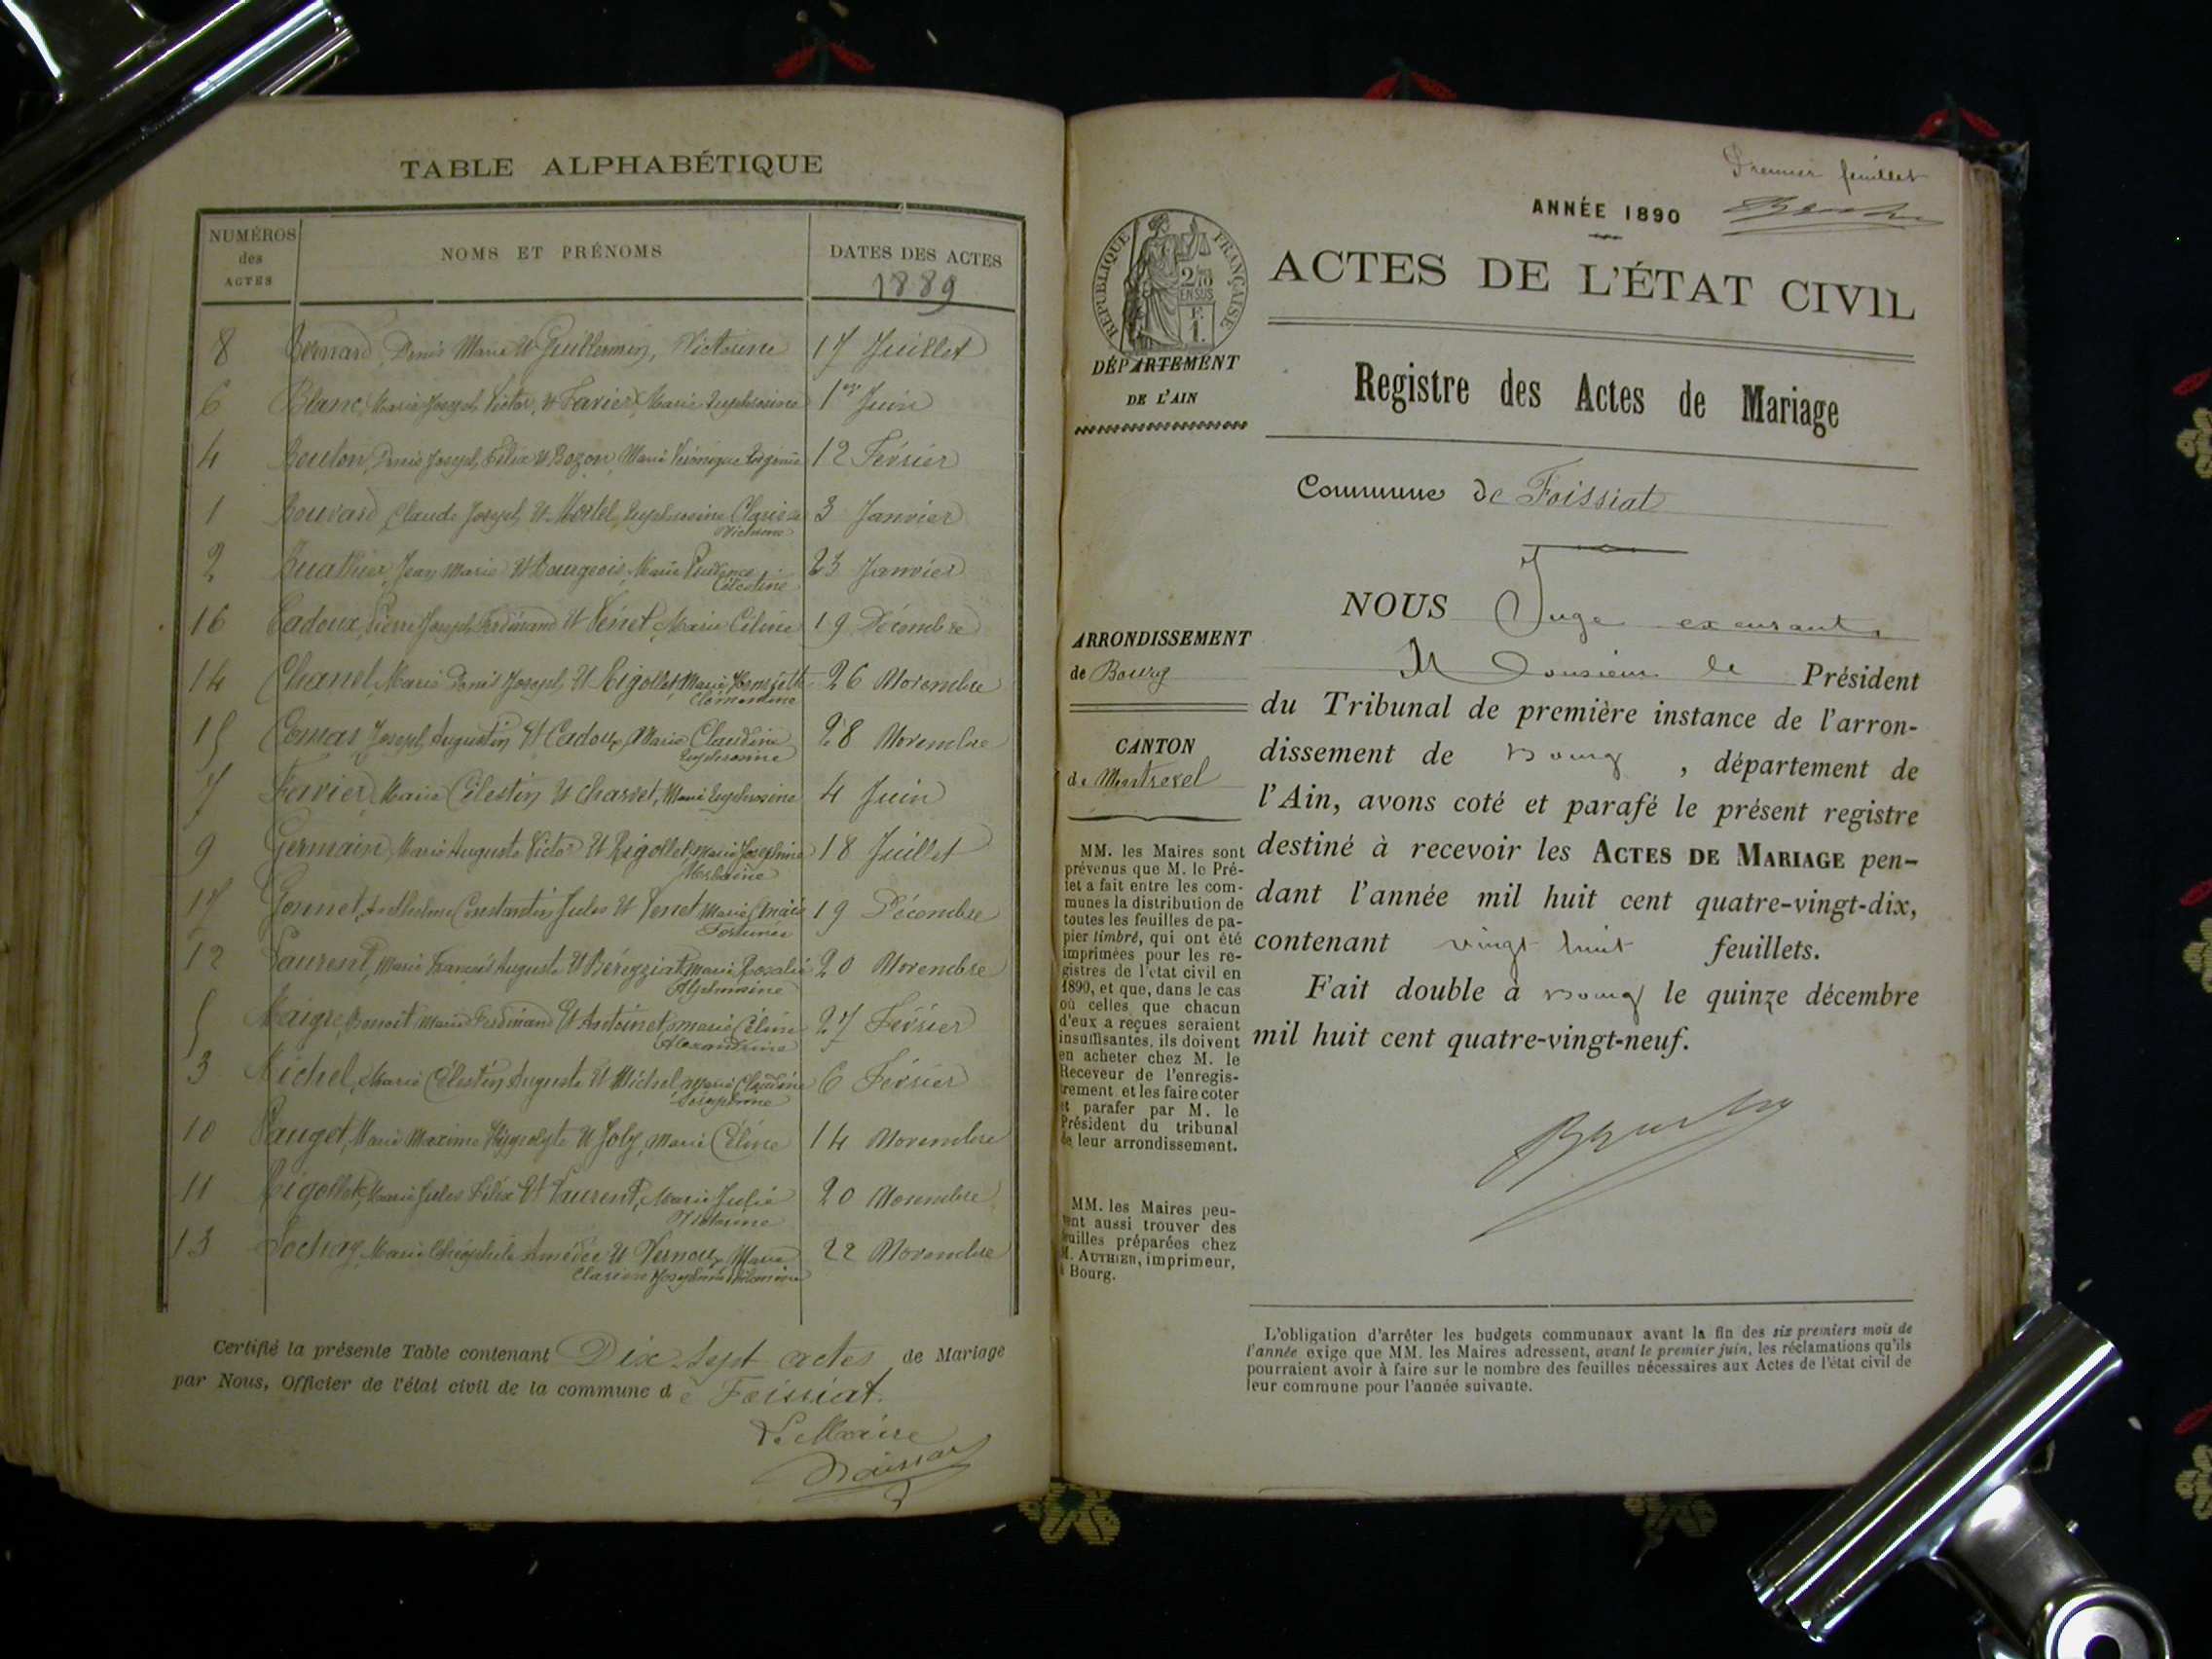 TABLE ALPHABÉTIQUE
NUMÉROS des ACTES
NOMS ET PRÉNOMS
DATES DES ACTES
1889
8 Bernard, Denis Marie et Guillermin, Victorine 17 Juillet
6 Blanc, Marie Joseph Victor, et Favier, Marie Euphrosine 1er Juin
4 Bouton, Denis Joseph Félix et Bozon, Marie Véronique 12 Février
1 Bouvard Claude Joseph et Mortel, Euphrosine Clarisse 3 Janvier
Victorine
2 Buathier, Jean Marie et Bourgeois, Marie Prudence 23 Janvier
Célestine
16 Cadoux, Pierre Joseph Ferdinand et Venet, Marie Céline 19 Décembre
14 Chanel, Marie Denis Joseph et Rigollet, Marie 26 Novembre
Clémentine
15 Comas Joseph Augustin et Cadoux, Marie Claudine 28 Novembre
Euphrosine
7 Favier, Marie Célestin et Charvet, Marie Euphrosine 4 Juin
9 Germain, Marie Auguste Victor et Rigollet, Marie Joséphine 18 Juillet
17 Gonnet, Anthelme Constantin Jules et Venet Marie Anaïs 19 Décembre
12 Laurent, Marie François Auguste et Béreyziat, Marie Rosalie 20 Novembre
Alphonsine
5 Maigre, Benoit Marie Ferdinand et Antoinet, Marie Céline 27 Février
Alexandrine
3 Michel, Marie Célestin Auguste et Michel, Marie Claudine 6 Février
Séraphine
10 Pauget, Marie Maxime Hippolyte et Joly, Marie Céline 14 Novembre
11 Rigollet, Marie Jules Félix et Laurent, Marie Julie 20 Novembre
Victorine
13 Sochay, Marie Théophile Amédée et Vernoux, Marie 22 Novembre
Clarisse Joséphine Philomène
Certifié la présente Table contenant Dix sept actes de Mariage
par Nous, Officier de l'état civil de la commune de Foissiat.
Le Maire
Premier feuillet
ANNÉE 1890
RÉPUBLIQUE FRANÇAISE
2/10
EN SUS
F.
1.
ACTES DE L'ÉTAT CIVIL
DÉPARTEMENT
DE L'AIN
Registre des Actes de Mariage
Commune de Foissiat
ARRONDISSEMENT
de Bourg
CANTON
de Montrevel
MM. les Maires sont
prévenus que M. le Pré-
fet a fait entre les com-
munes la distribution de
toutes les feuilles de pa-
pier timbré, qui ont été
imprimées pour les re-
gistres de l'état civil en
1890, et que, dans le cas
où celles que chacun
d'eux a reçues seraient
insuffisantes, ils doivent
en acheter chez M. le
Receveur de l'enregis-
trement et les faire coter
et parafer par M. le
Président du tribunal
de leur arrondissement.
MM. les Maires peu-
vent aussi trouver des
feuilles préparées chez
M. AUTHIER, imprimeur,
à Bourg.
NOUS Juge
Monsieur le Président
du Tribunal de première instance de l'arron-
dissement de Bourg, département de
l'Ain, avons coté et parafé le présent registre
destiné à recevoir les ACTES DE MARIAGE pen-
dant l'année mil huit cent quatre-vingt-dix,
contenant vingt huit feuillets.
Fait double à Bourg le quinze décembre
mil huit cent quatre-vingt-neuf.
L'obligation d'arrêter les budgets communaux avant la fin des six premiers mois de
l'année exige que MM. les Maires adressent, avant le premier juin, les réclamations qu'ils
pourraient avoir à faire sur le nombre des feuilles nécessaires aux Actes de l'état civil de
leur commune pour l'année suivante.